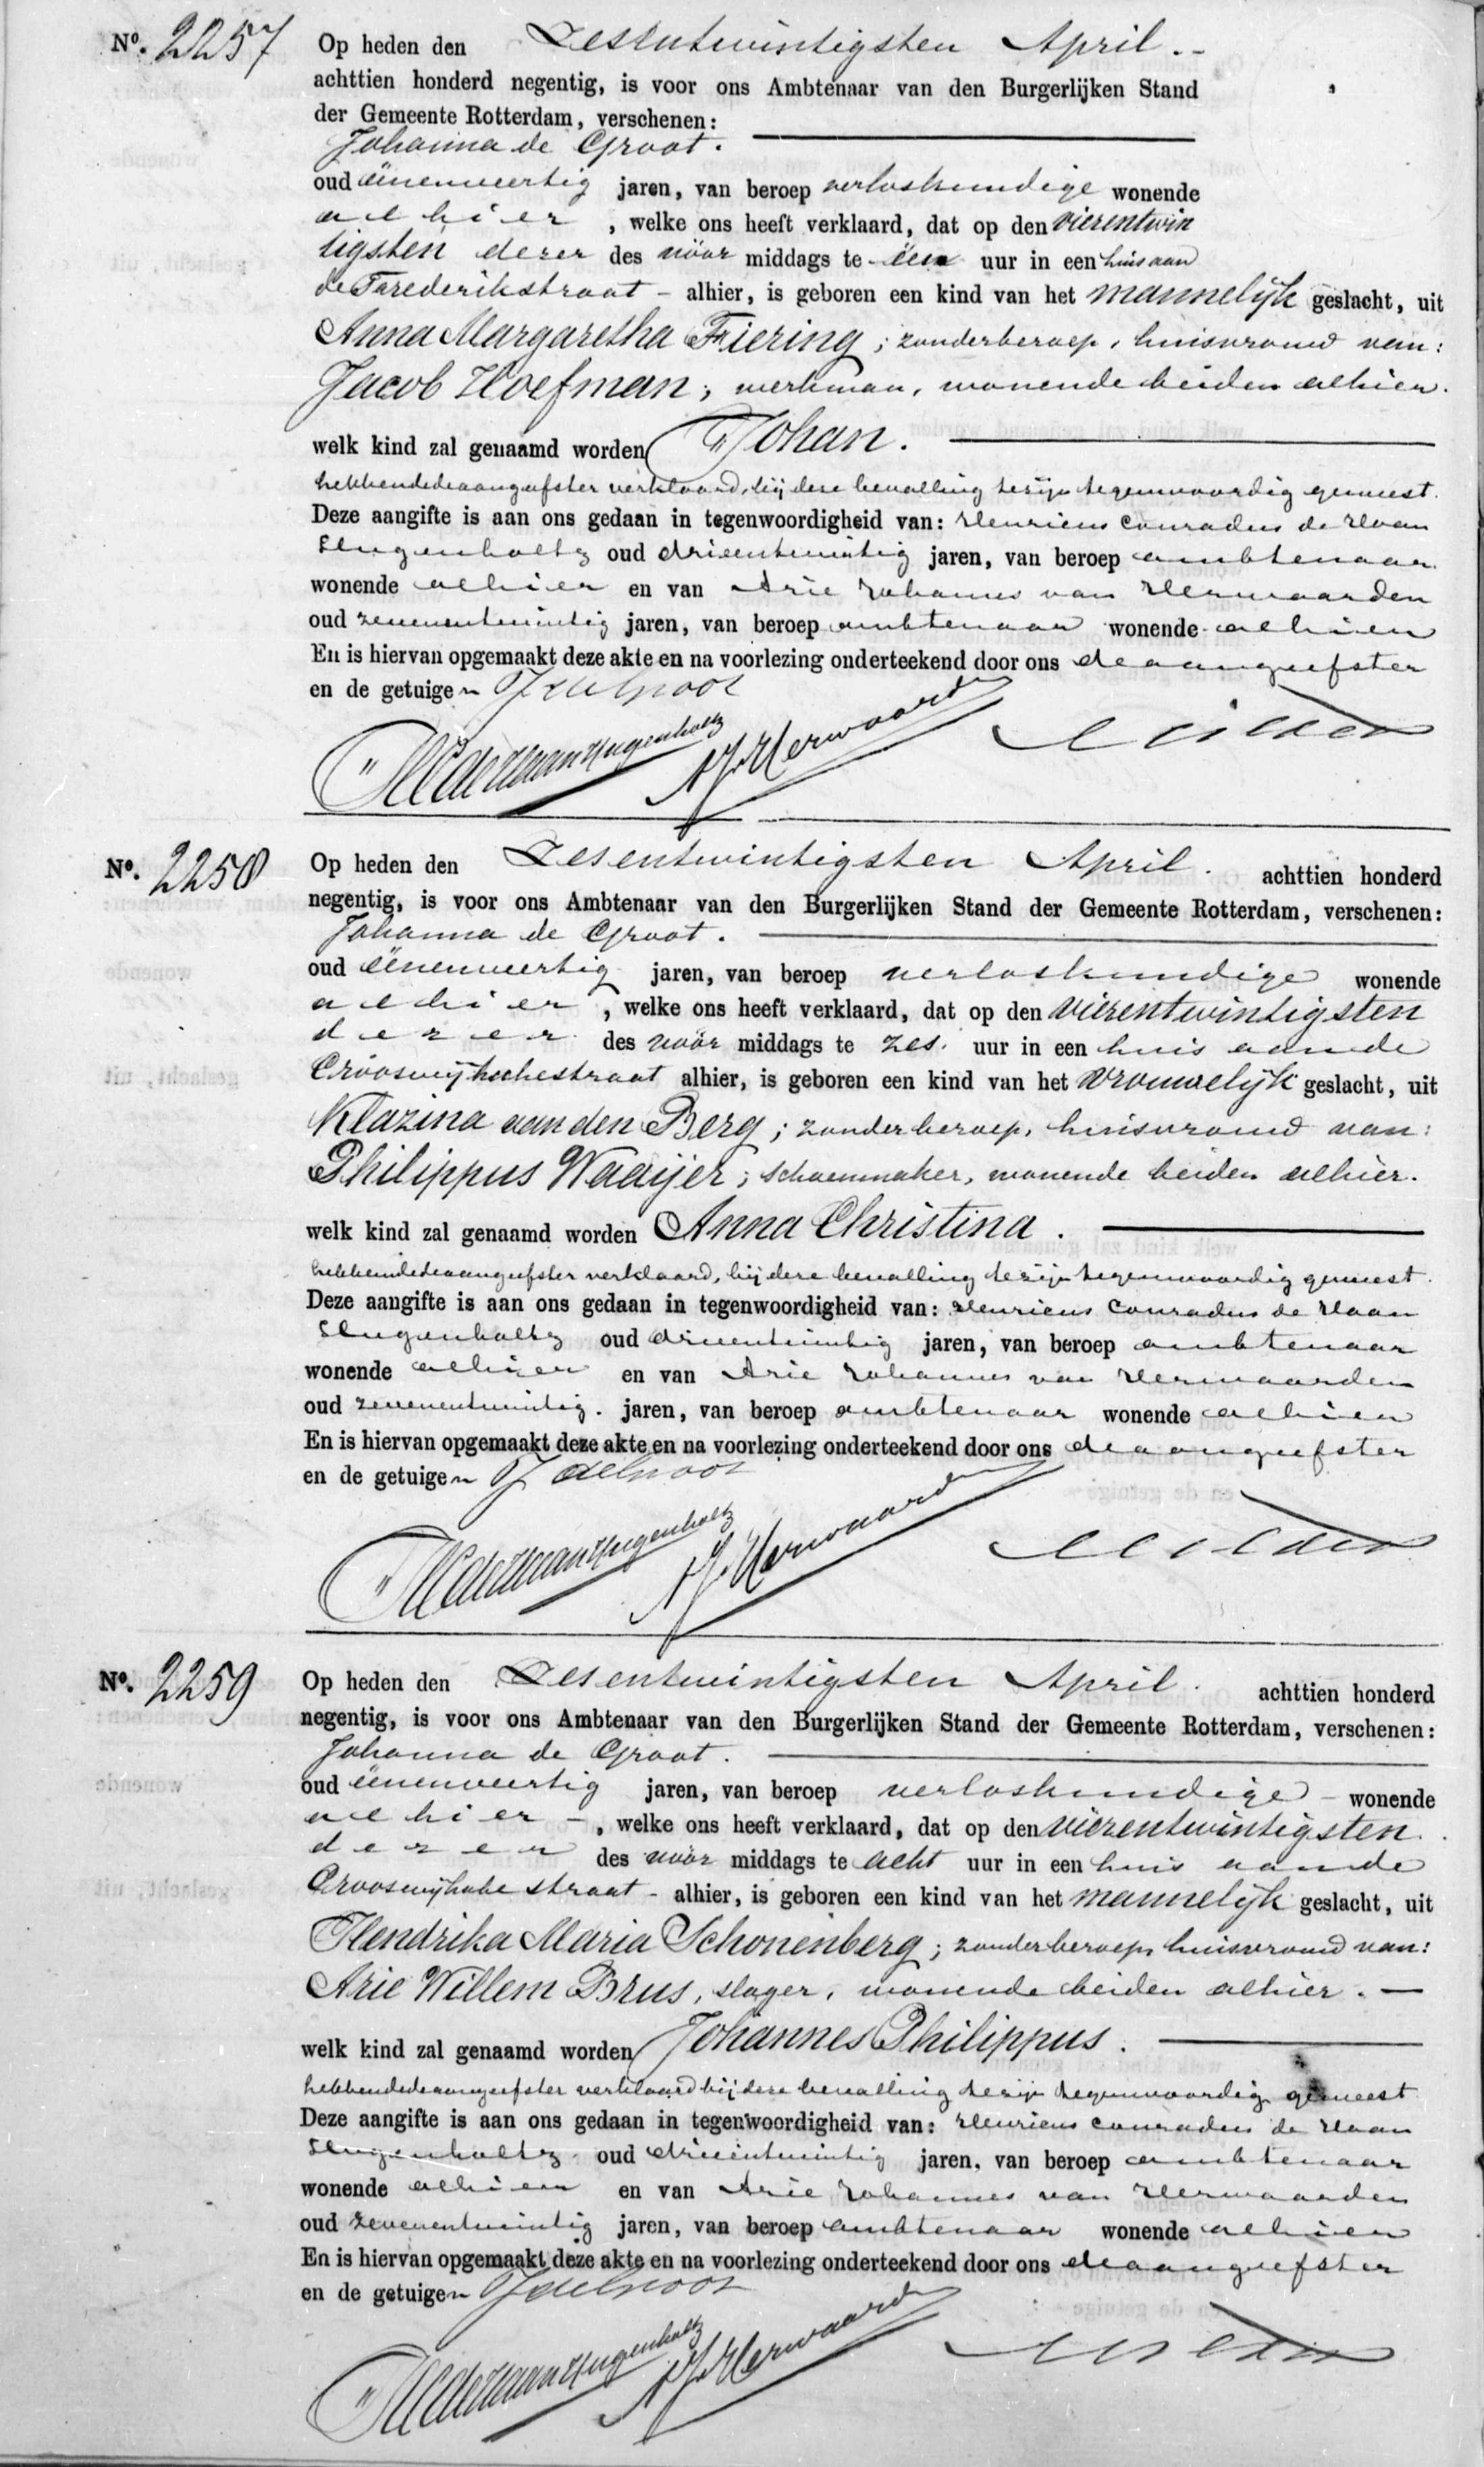 No. 2257 Op heden den Zesentwintigsten April.
achttien honderd negentig, is voor ons Ambtenaar van den Burgerlijken Stand
der Gemeente Rotterdam, verschenen:
Johanna de Groot.
oud éénenveertig jaren, van beroep verloskundige wonende
alhier, welke ons heeft verklaard, dat op den vierentwin
tigsten dezer des vóór middags te één uur in een huis aan
de Frederikstraat - alhier, is geboren een kind van het mannelijk geslacht, uit
Anna Margaretha Fiering; zonder beroep, huisvrouw van:
Jacob Hoefman; werkman, wonende beiden alhier.
welk kind zal genaamd worden Johan.
hebbende de aangeefster verklaard, bij deze bevalling te zijn tegenwoordig geweest.
Deze aangifte is aan ons gedaan in tegenwoordigheid van: Henricus Conradus de Haan
Hugenholtz oud drieentwintig jaren, van beroep ambtenaar
wonende alhier en van Arie Johannes van Herwaarden
oud zevenentwintig jaren, van beroep ambtenaar wonende alhier
En is hiervan opgemaakt deze akte en na voorlezing onderteekend door ons de aangeefster
en de getuigen J de Groot
HC de Haan Hugenholtz AJ v Herwaarden
No. 2258 Op heden den Zesentwintigsten April. achttien honderd
negentig, is voor ons Ambtenaar van den Burgerlijken Stand der Gemeente Rotterdam, verschenen:
Johanna de Groot.
oud éénenveertig jaren, van beroep verloskundige wonende
alhier, welke ons heeft verklaard, dat op den vierentwintigsten
dezer des vóór middags te zes. uur in een huis aan de
Crooswijkschestraat alhier, is geboren een kind van het vrouwelijk geslacht, uit
Klazina van den Berg; zonder beroep, huisvrouw van:
Philippus Waaijer; schoenmaker, wonende beiden alhier.
welk kind zal genaamd worden Anna Christina.
hebbende de aangeefster verklaard, bij deze bevalling te zijn tegenwoordig geweest.
Deze aangifte is aan ons gedaan in tegenwoordigheid van: Henricus Conradus de Haan
Hugenholtz oud drieentwintig jaren, van beroep ambtenaar
wonende alhier en van Arie Johannes van Herwaarden
oud zevenentwintig. jaren, van beroep ambtenaar wonende alhier
En is hiervan opgemaakt deze akte en na voorlezing onderteekend door ons de aangeefster
en de getuigen J de Groot
HC de Haan Hugenholtz AJ v Herwaarden
No. 2259 Op heden den Zesentwintigsten April. achttien honderd
negentig, is voor ons Ambtenaar van den Burgerlijken Stand der Gemeente Rotterdam, verschenen:
Johanna de Groot.
oud éénenveertig jaren, van beroep verloskundige - wonende
alhier -, welke ons heeft verklaard, dat op den vierentwintigsten.
dezer des vóór middags te acht uur in een huis aan de
Crooswijksche straat - alhier, is geboren een kind van het mannelijk geslacht, uit
Hendrika Maria Schonenberg; zonder beroep, huisvrouw van:
Arie Willem Brus, slager, wonende beiden alhier. -
welk kind zal genaamd worden Johannes Philippus.
hebbende de aangeefster verklaard bij deze bevalling te zijn tegenwoordig geweest
Deze aangifte is aan ons gedaan in tegenwoordigheid van: Henricus Conradus de Haan
Hugenholtz oud drieentwintig jaren, van beroep ambtenaar
wonende alhier en van Arie Johannes van Herwaarden
oud zevenentwintig jaren, van beroep ambtenaar wonende alhier
En is hiervan opgemaakt deze akte en na voorlezing onderteekend door ons de aangeefster
en de getuigen J de Groot
HC de Haan Hugenholtz AJ v Herwaarden